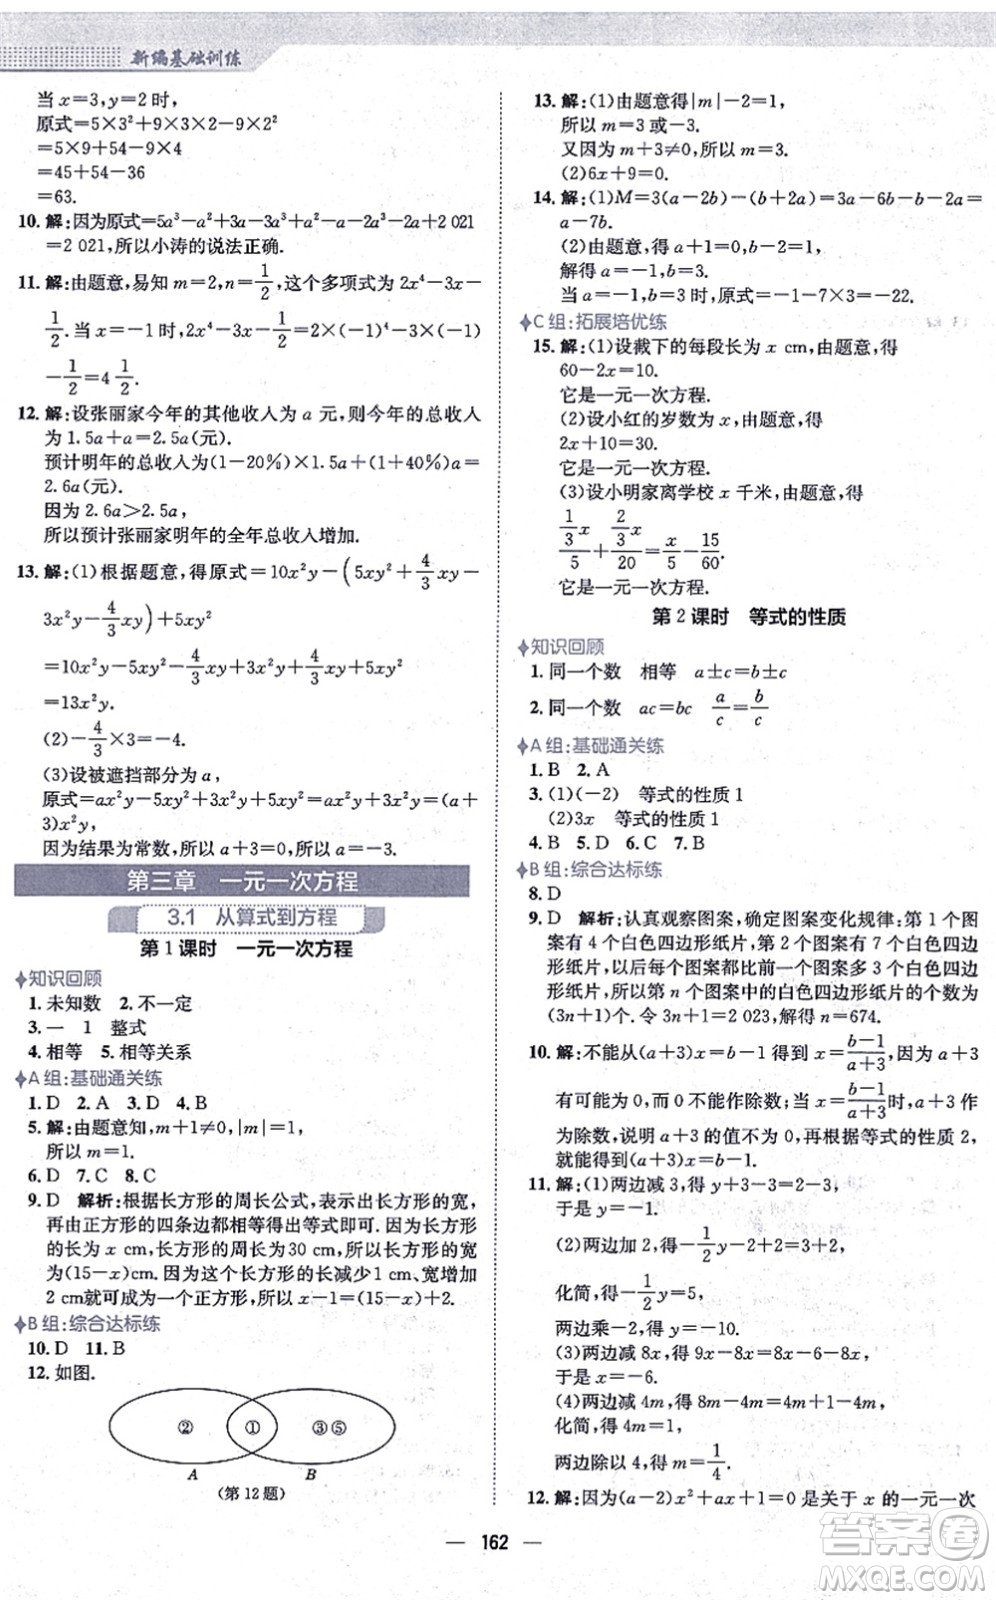 新编基础训练
当 x=3,y=2 时,
原式=5×3²+9×3×2-9×2²
=5×9+54-9×4
=45+54-36
=63.
10. 解:因为原式=5a³-a²+3a-3a³+a²-a-2a³-2a+2 021
=2 021,所以小涛的说法正确.
11. 解:由题意,易知 m=2,n=1/2,这个多项式为 2x⁴-3x-
1/2.当 x=-1 时,2x⁴-3x-1/2=2×(-1)⁴-3×(-1)
-1/2=4 1/2.
12. 解:设张丽家今年的其他收入为 a 元,则今年的总收入
为 1.5a+a=2.5a(元).
预计明年的总收入为(1-20%)×1.5a+(1+40%)a=
2.6a(元).
因为 2.6a>2.5a,
所以预计张丽家明年的全年总收入增加.
13. 解:(1)根据题意,得原式=10x²y-(5xy²+4/3xy-
3x²y-4/3xy)+5xy²
=10x²y-5xy²-4/3xy+3x²y+4/3xy+5xy²
=13x²y.
(2)-4/3×3=-4.
(3)设被遮挡部分为 a,
原式=ax²y-5xy²+3x²y+5xy²=ax²y+3x²y=(a+
3)x²y,
因为结果为常数,所以 a+3=0,所以 a=-3.
第三章 一元一次方程
3.1 从算式到方程
第 1 课时 一元一次方程
知识回顾
1. 未知数 2. 不一定
3. 一 1 整式
4. 相等 5. 相等关系
A 组:基础通关练
1. D 2. A 3. D 4. B
5. 解:由题意知,m+1≠0,|m|=1,
所以 m=1.
6. D 7. C 8. C
9. D 解析:根据长方形的周长公式,表示出长方形的宽,
再由正方形的四条边都相等得出等式即可.因为长方形
的长为 x cm,长方形的周长为 30 cm,所以长方形的宽
为(15-x)cm.因为这个长方形的长减少1 cm、宽增加
2 cm就可成为一个正方形,所以 x-1=(15-x)+2.
B 组:综合达标练
10. D 11. B
12. 如图.
② ① ③⑤
A B
(第 12 题)
13. 解:(1)由题意得|m|-2=1,
所以 m=3 或-3.
又因为 m+3≠0,所以 m=3.
(2)6x+9=0.
14. 解:(1)M=3(a-2b)-(b+2a)=3a-6b-b-2a=
a-7b.
(2)由题意,得 a+1=0,b-2=1,
解得 a=-1,b=3.
当 a=-1,b=3 时,原式=-1-7×3=-22.
C 组:拓展培优练
15. 解:(1)设截下的每段长为 x cm,由题意,得
60-2x=10.
它是一元一次方程.
(2)设小红的岁数为 x,由题意,得
2x+10=30.
它是一元一次方程.
(3)设小明家离学校 x 千米,由题意,得
(1/3x)/5+(2/3x)/20=x/5-15/60.
它是一元一次方程.
第 2 课时 等式的性质
知识回顾
1. 同一个数 相等 a±c=b±c
2. 同一个数 ac=bc a/c=b/c
A 组:基础通关练
1. B 2. A
3. (1)(-2) 等式的性质 1
(2)3x 等式的性质 1
4. B 5. D 6. C 7. B
B 组:综合达标练
8. D
9. D 解析:认真观察图案,确定图案变化规律:第 1 个图
案有 4 个白色四边形纸片,第 2 个图案有 7 个白色四边
形纸片,以后每个图案都比前一个图案多 3 个白色四边
形纸片,所以第 n 个图案中的白色四边形纸片的个数为
(3n+1)个.令 3n+1=2 023,解得 n=674.
10. 解:不能从(a+3)x=b-1 得到 x=(b-1)/(a+3),因为 a+3
有可能为0,而 0 不能作除数;当 x=(b-1)/(a+3)时,a+3 作
为除数,说明 a+3 的值不为 0,再根据等式的性质 2,
就能得到(a+3)x=b-1.
11. 解:(1)两边减 3,得 y+3-3=2-3,
于是 y=-1.
(2)两边加 2,得-1/2y-2+2=3+2,
化简,得-1/2y=5.
两边乘-2,得 y=-10.
(3)两边减 8x,得 9x-8x=8x-6-8x,
于是 x=-6.
(4)两边减 4m,得 8m-4m=4m+1-4m,
化简,得 4m=1.
两边除以 4,得 m=1/4.
12. 解:因为(a-2)x²+ax+1=0 是关于 x 的一元一次
— 162 —
答案圈
MXQE.COM